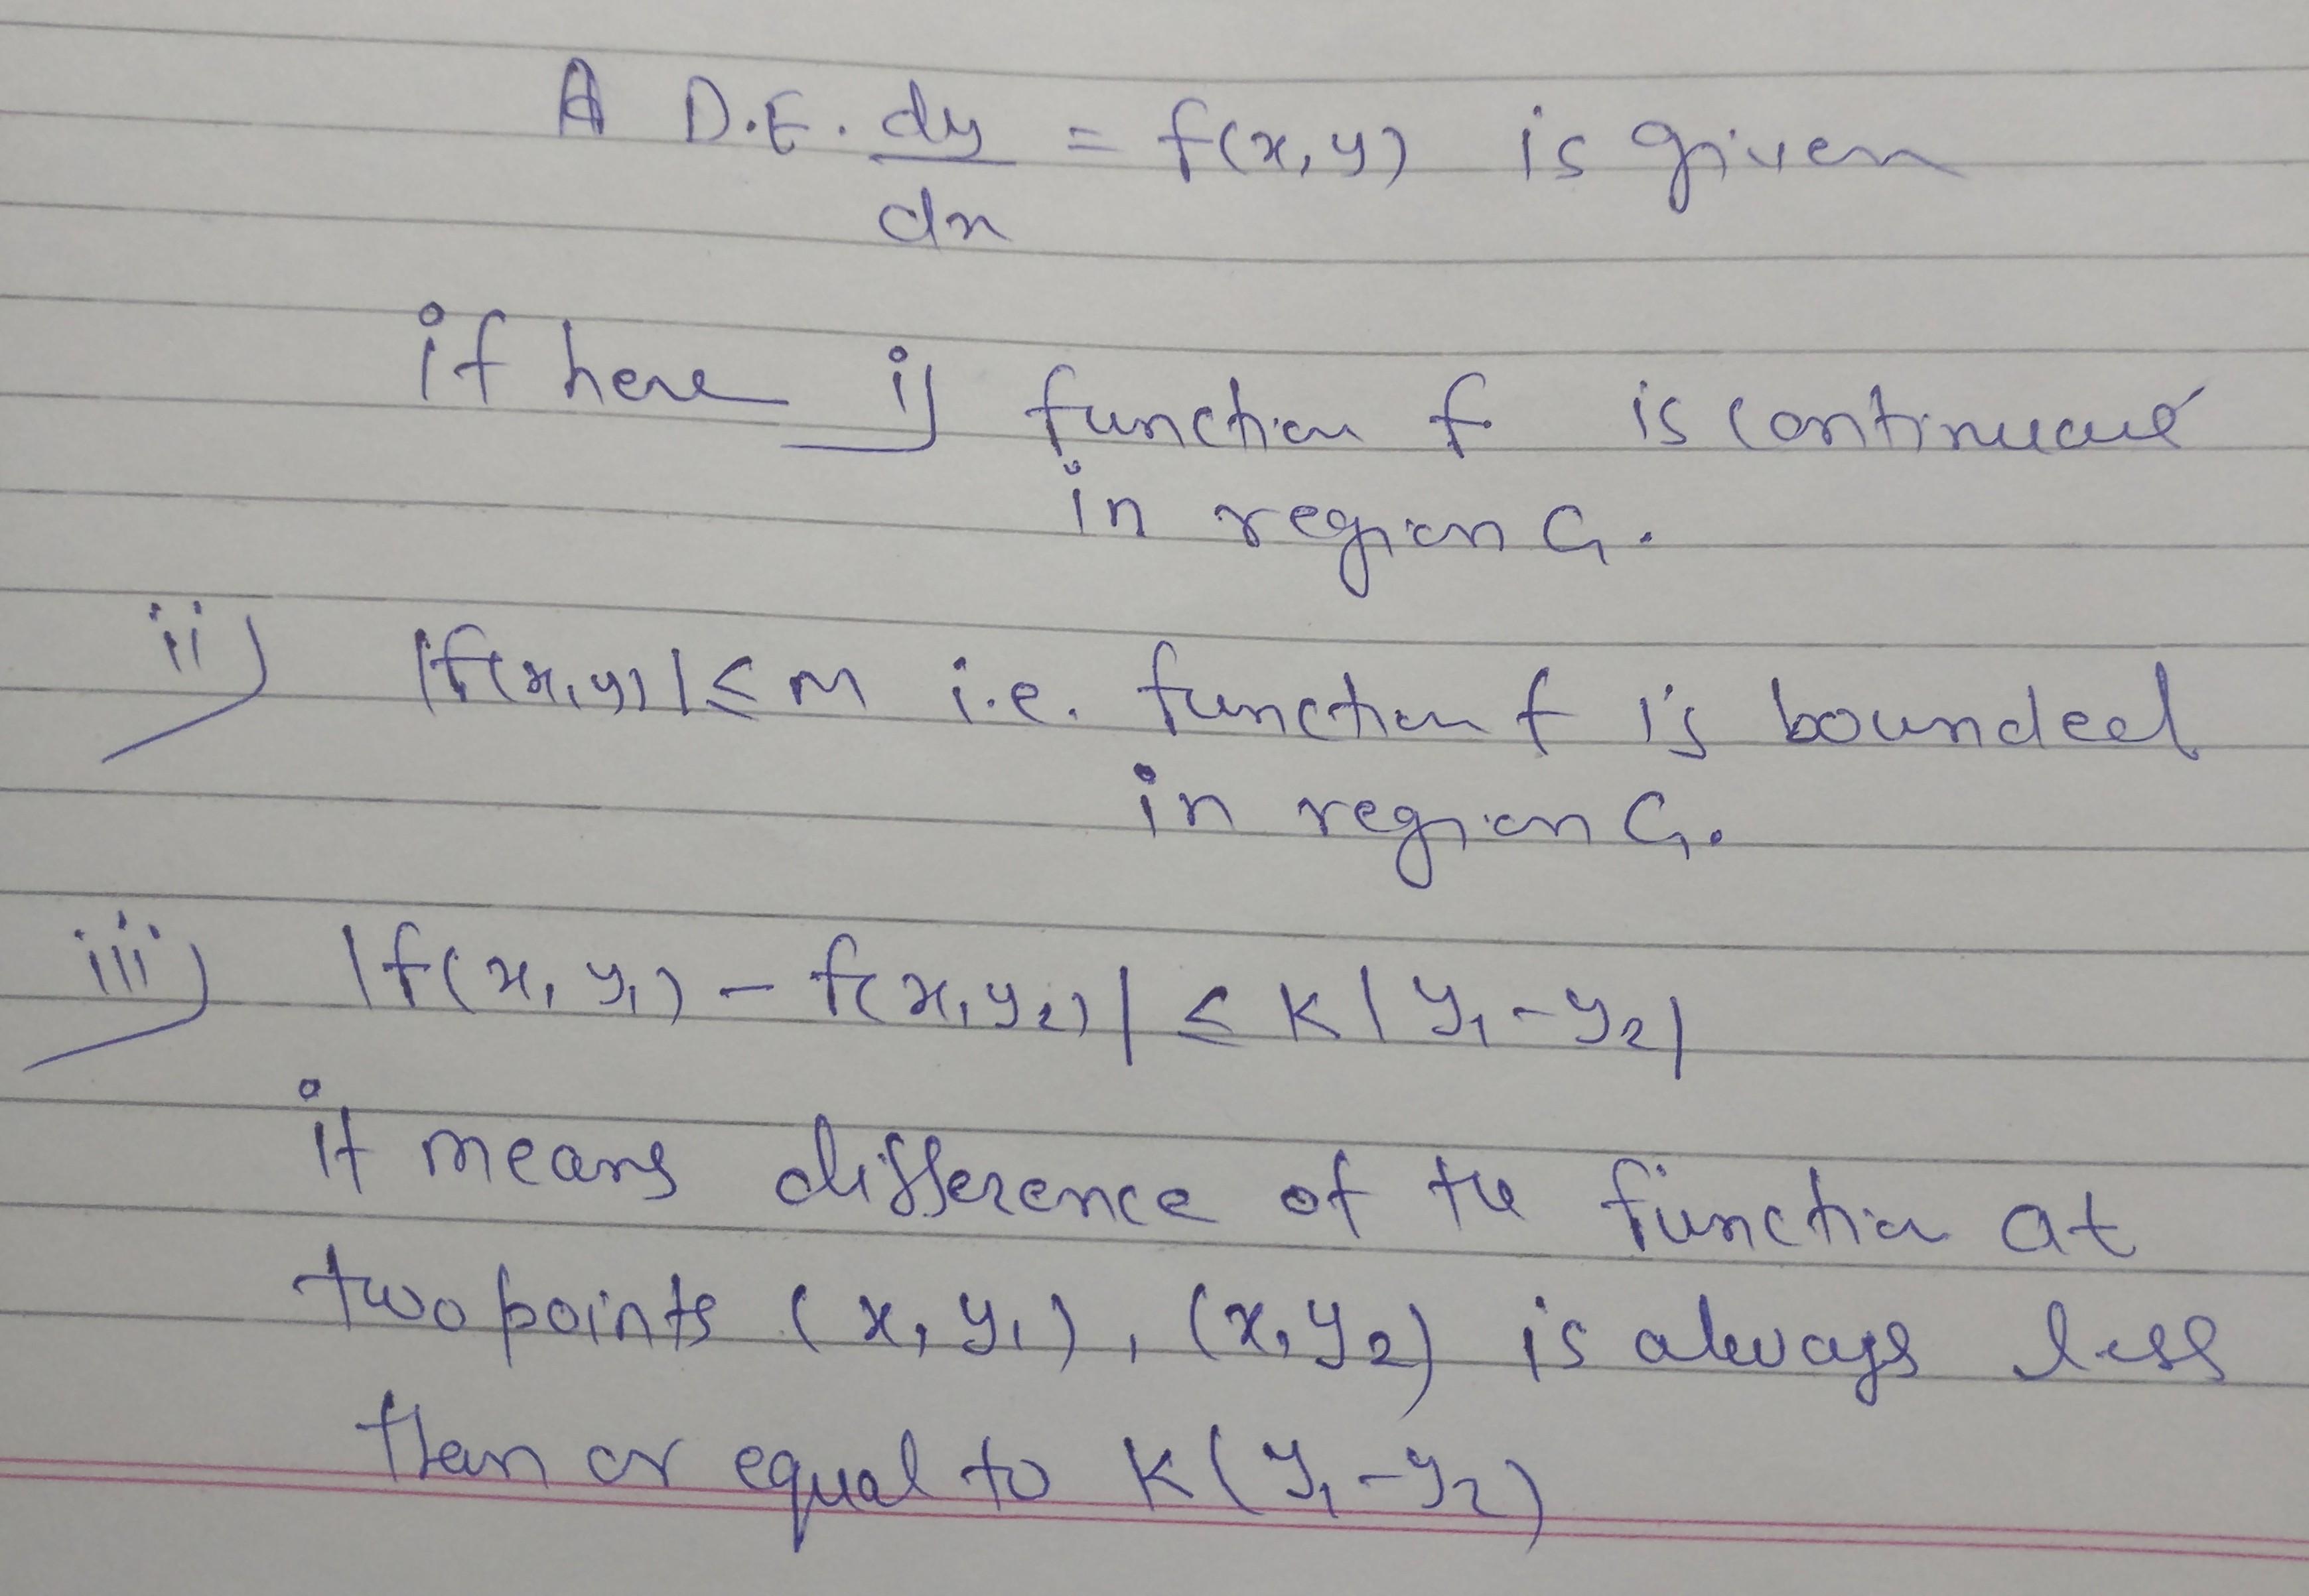 A D.E. dy/dx = f(x, y) is given
if here i) function f is continuous
in region G.
ii) |f(x,y)| ≤ M i.e. function f is bounded
in region G.
iii) |f(x, y₁) - f(x, y₂)| ≤ K | y₁ - y₂|
it means difference of the function at
two points (x, y₁), (x, y₂) is always less
than or equal to K(y₁ - y₂)